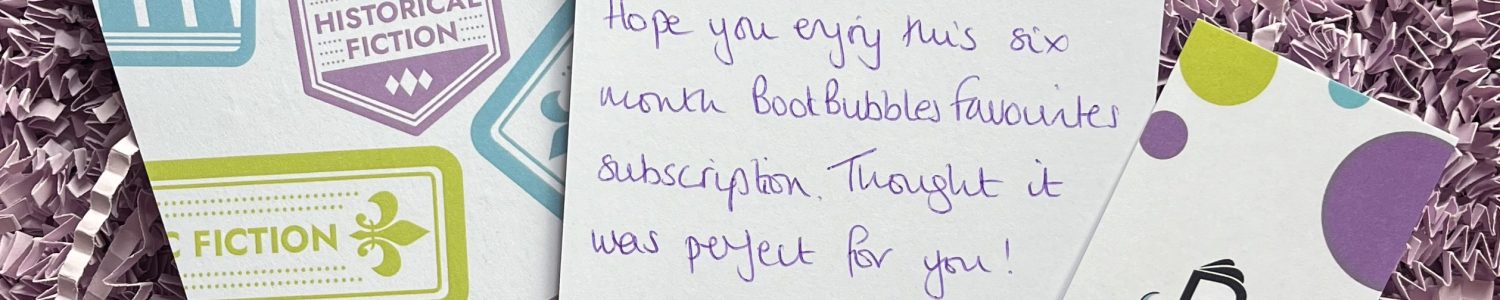 HISTORICAL
FICTION
C FICTION
Hope you enjoy this six
month BookBubbles favourites
subscription. Thought it
was perfect for you!